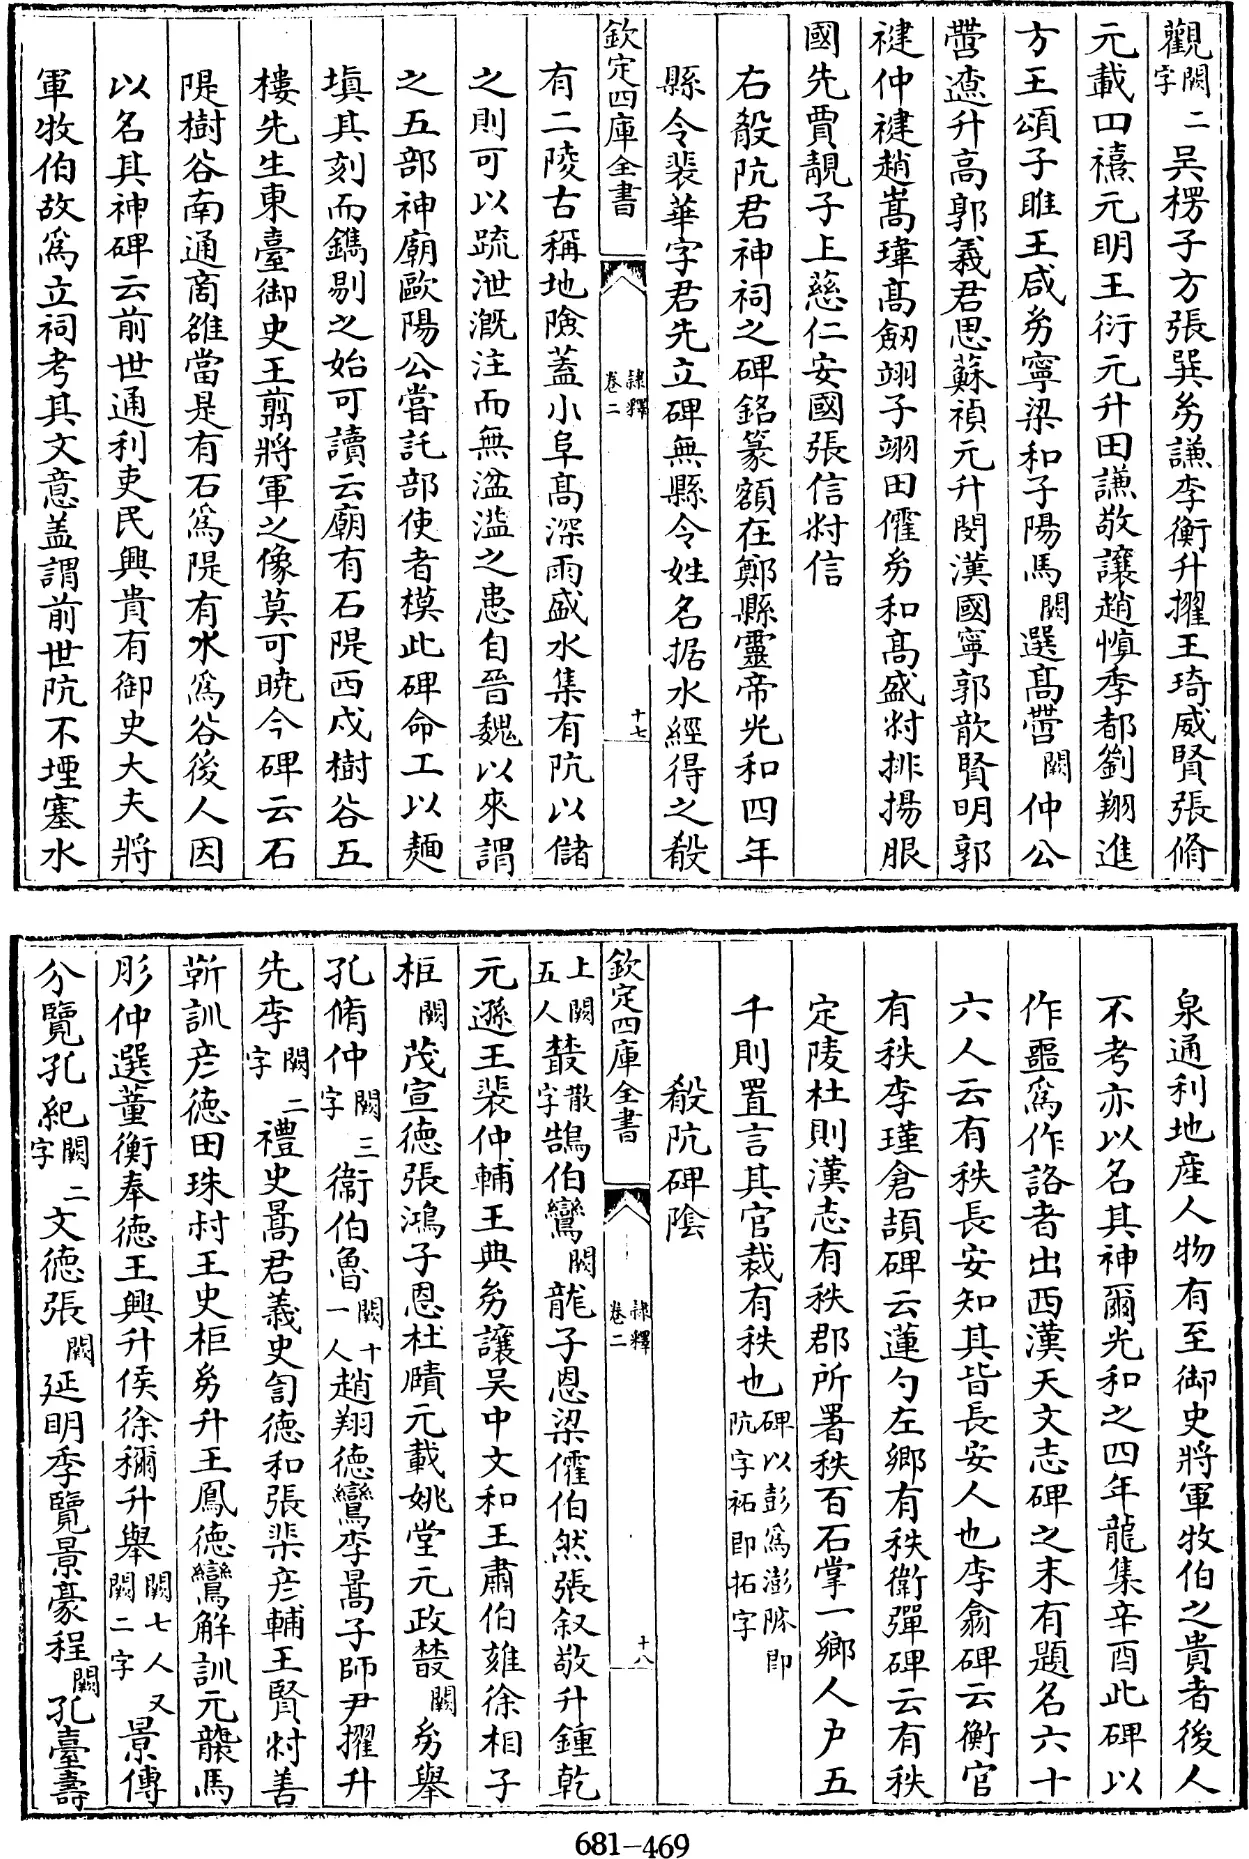 觀闕二字吴楞子方張㢲㓜謙李衡升擢王琦威賢張脩
元載田禧元明王衍元升田謙敬讓趙慎季都劉翔進
方王頌子雎王咸㓜寧梁和子陽馬闕選髙營闕仲公
營遵升高郭義君思蘇禎元升閔漢國寧郭歆賢明郭
揵仲揵趙嵩瑋髙劒翊子翊田㒧㓜和髙盛村排揚服
國先賈靚子上慈仁安國張信村信
右殽阬君神祠之碑銘篆額在鄭縣靈帝光和四年
縣令裴華字君先立碑無縣令姓名据水經得之殽
欽定四庫全書
隸釋
卷二
十七
有二陵古稱地險蓋小阜髙深雨盛水集有阬以儲
之則可以疏泄溉注而無溢溢之患自晉魏以來謂
之五部神廟歐陽公嘗託部使者模此碑命工以麵
填其刻而鐫剔之始可讀云廟有石隄西戍樹谷五
樓先生東臺御史王翦將軍之像莫可曉今碑云石
隄樹谷南通商雒當是有石為隄有水為谷後人因
以名其神碑云前世通利吏民興貴有御史大夫將
軍牧伯故為立祠考其文意盖謂前世阬不堙塞水
泉通利地産人物有至御史將軍牧伯之貴者後人
不考亦以名其神爾光和之四年龍集辛酉此碑以
作噩為作詻者出西漢天文志碑之末有題名六十
六人云有秩長安知其皆長安人也李翕碑云衡官
有秩李瑾倉頡碑云蓮勺左鄉有秩衛彈碑云有秩
定陵杜則漢志有秩郡所署秩百石掌一鄉人户五
千則置言其官裁有秩也碑以彭為澎䏢即阬字袥即拓字
殽阬碑陰
欽定四庫全書
隸釋
卷二
十八
上闕五人䕺散字鵠伯鸞闕龍子恩梁㒧伯然張叙敬升鍾乾
元遜王裴仲輔王典㓜讓吴中文和王肅伯雍徐相子
柜闕茂宣徳張鴻子恩杜賾元載姚堂元政䕺闕㓜舉
孔脩仲闕三字衛伯魯闕十一人趙翔徳鸞李暠子師尹擢升
先李闕二字禮史暠君義史訇徳和張渠彦輔王賢村善
靳訓彦徳田珠村王史柜㓜升王鳳徳鸞解訓元龒馬
肜仲選董衡奉徳王興升侯徐穪升舉闕七人又闕二字景傅
分覽孔紀闕二字文徳張闕延明季覽景豪程闕孔臺壽
681-469